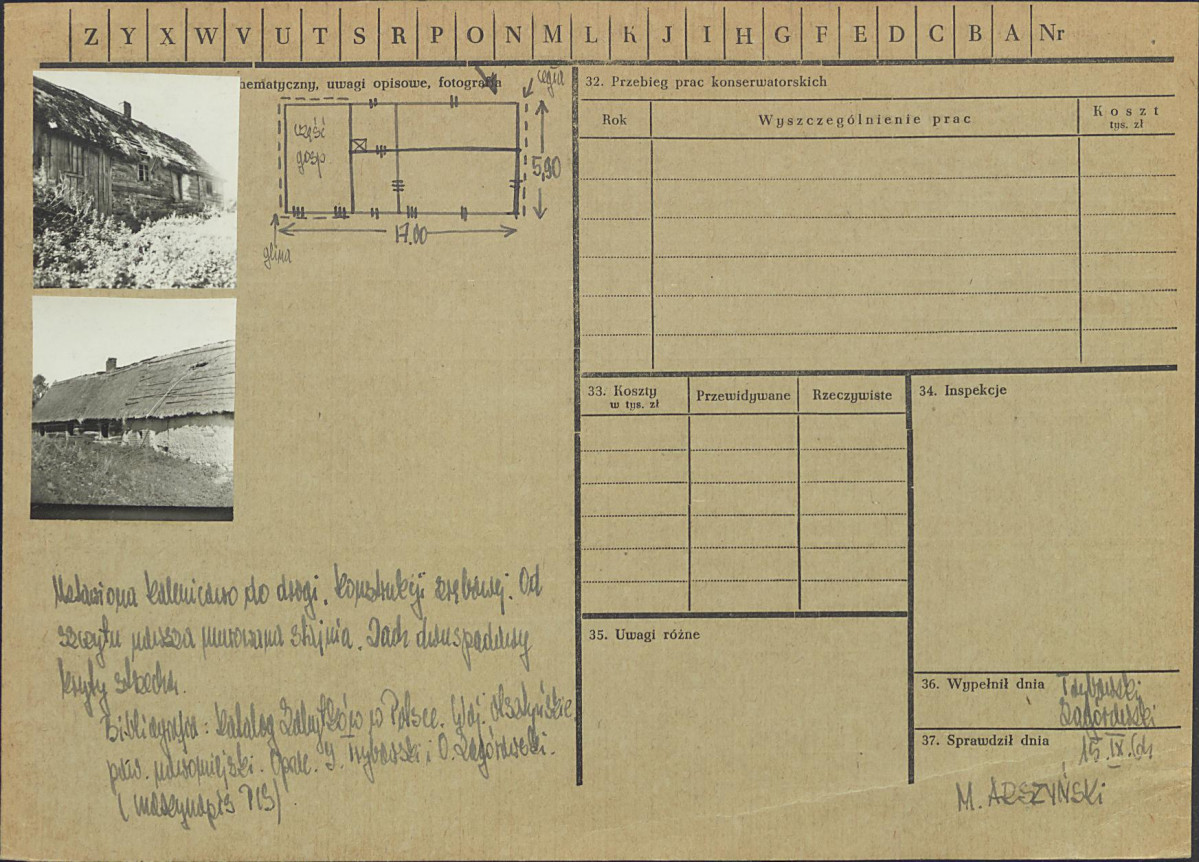 Z Y X W V U T S R P O N M L K J I H G F E D C B A Nr
hematyczny, uwagi opisowe, fotografia
cegła
część
gosp
5,90
17.00
glina
32. Przebieg prac konserwatorskich
Rok Wyszczególnienie prac Koszt
tys. zł
33. Koszty
w tys. zł
Przewidywane Rzeczywiste
34. Inspekcje
35. Uwagi różne
36. Wypełnił dnia
37. Sprawdził dnia 15.IX.
M. ARSZYŃSKI
kalenicowo do drogi. Konstrukcji zrębowej. Od
szczytu murowana stajnia. Dach dwuspadowy
kryty strzechą.
Bibliografia: Katalog Zabytków w Polsce. Woj. Olsztyńskie
pow. nowomiejski. Oprac. J. i O. Zagórowski.
(maszynopis PIS)